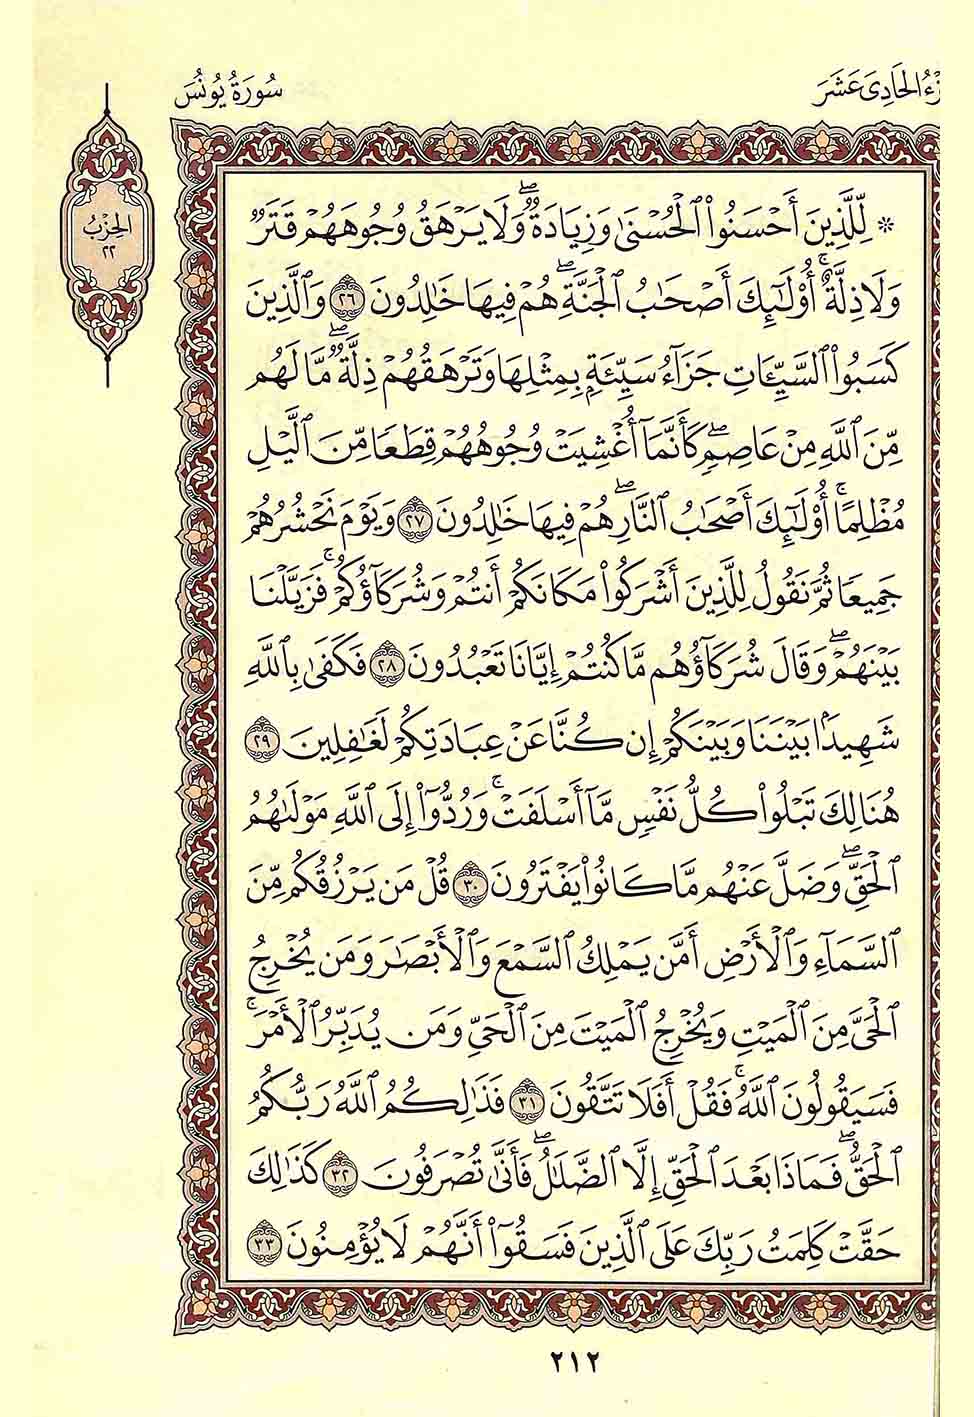 ـزْءُ الْحَادِيَ عَشَرَ
سُورَةُ يُونُسَ
الحِزْبُ
٢٢
* لِّلَّذِينَ أَحْسَنُوا۟ ٱلْحُسْنَىٰ وَزِيَادَةٌ ۖ وَلَا يَرْهَقُ وُجُوهَهُمْ قَتَرٌ
وَلَا ذِلَّةٌ ۚ أُو۟لَـٰٓئِكَ أَصْحَـٰبُ ٱلْجَنَّةِ ۖ هُمْ فِيهَا خَـٰلِدُونَ ٢٦ وَٱلَّذِينَ
كَسَبُوا۟ ٱلسَّيِّـَٔاتِ جَزَآءُ سَيِّئَةٍۭ بِمِثْلِهَا وَتَرْهَقُهُمْ ذِلَّةٌ ۖ مَّا لَهُم
مِّنَ ٱللَّهِ مِنْ عَاصِمٍ ۖ كَأَنَّمَآ أُغْشِيَتْ وُجُوهُهُمْ قِطَعًا مِّنَ ٱلَّيْلِ
مُظْلِمًا ۚ أُو۟لَـٰٓئِكَ أَصْحَـٰبُ ٱلنَّارِ ۖ هُمْ فِيهَا خَـٰلِدُونَ ٢٧ وَيَوْمَ نَحْشُرُهُمْ
جَمِيعًا ثُمَّ نَقُولُ لِلَّذِينَ أَشْرَكُوا۟ مَكَانَكُمْ أَنتُمْ وَشُرَكَآؤُكُمْ ۚ فَزَيَّلْنَا
بَيْنَهُمْ ۖ وَقَالَ شُرَكَآؤُهُم مَّا كُنتُمْ إِيَّانَا تَعْبُدُونَ ٢٨ فَكَفَىٰ بِٱللَّهِ
شَهِيدًۢا بَيْنَنَا وَبَيْنَكُمْ إِن كُنَّا عَنْ عِبَادَتِكُمْ لَغَـٰفِلِينَ ٢٩
هُنَالِكَ تَبْلُوا۟ كُلُّ نَفْسٍ مَّآ أَسْلَفَتْ ۚ وَرُدُّوٓا۟ إِلَى ٱللَّهِ مَوْلَىٰهُمُ
ٱلْحَقِّ ۖ وَضَلَّ عَنْهُم مَّا كَانُوا۟ يَفْتَرُونَ ٣٠ قُلْ مَن يَرْزُقُكُم مِّنَ
ٱلسَّمَآءِ وَٱلْأَرْضِ أَمَّن يَمْلِكُ ٱلسَّمْعَ وَٱلْأَبْصَـٰرَ وَمَن يُخْرِجُ
ٱلْحَىَّ مِنَ ٱلْمَيِّتِ وَيُخْرِجُ ٱلْمَيِّتَ مِنَ ٱلْحَىِّ وَمَن يُدَبِّرُ ٱلْأَمْرَ ۚ
فَسَيَقُولُونَ ٱللَّهُ ۚ فَقُلْ أَفَلَا تَتَّقُونَ ٣١ فَذَٰلِكُمُ ٱللَّهُ رَبُّكُمُ
ٱلْحَقُّ ۖ فَمَاذَا بَعْدَ ٱلْحَقِّ إِلَّا ٱلضَّلَـٰلُ ۖ فَأَنَّىٰ تُصْرَفُونَ ٣٢ كَذَٰلِكَ
حَقَّتْ كَلِمَتُ رَبِّكَ عَلَى ٱلَّذِينَ فَسَقُوٓا۟ أَنَّهُمْ لَا يُؤْمِنُونَ ٣٣
٢١٢